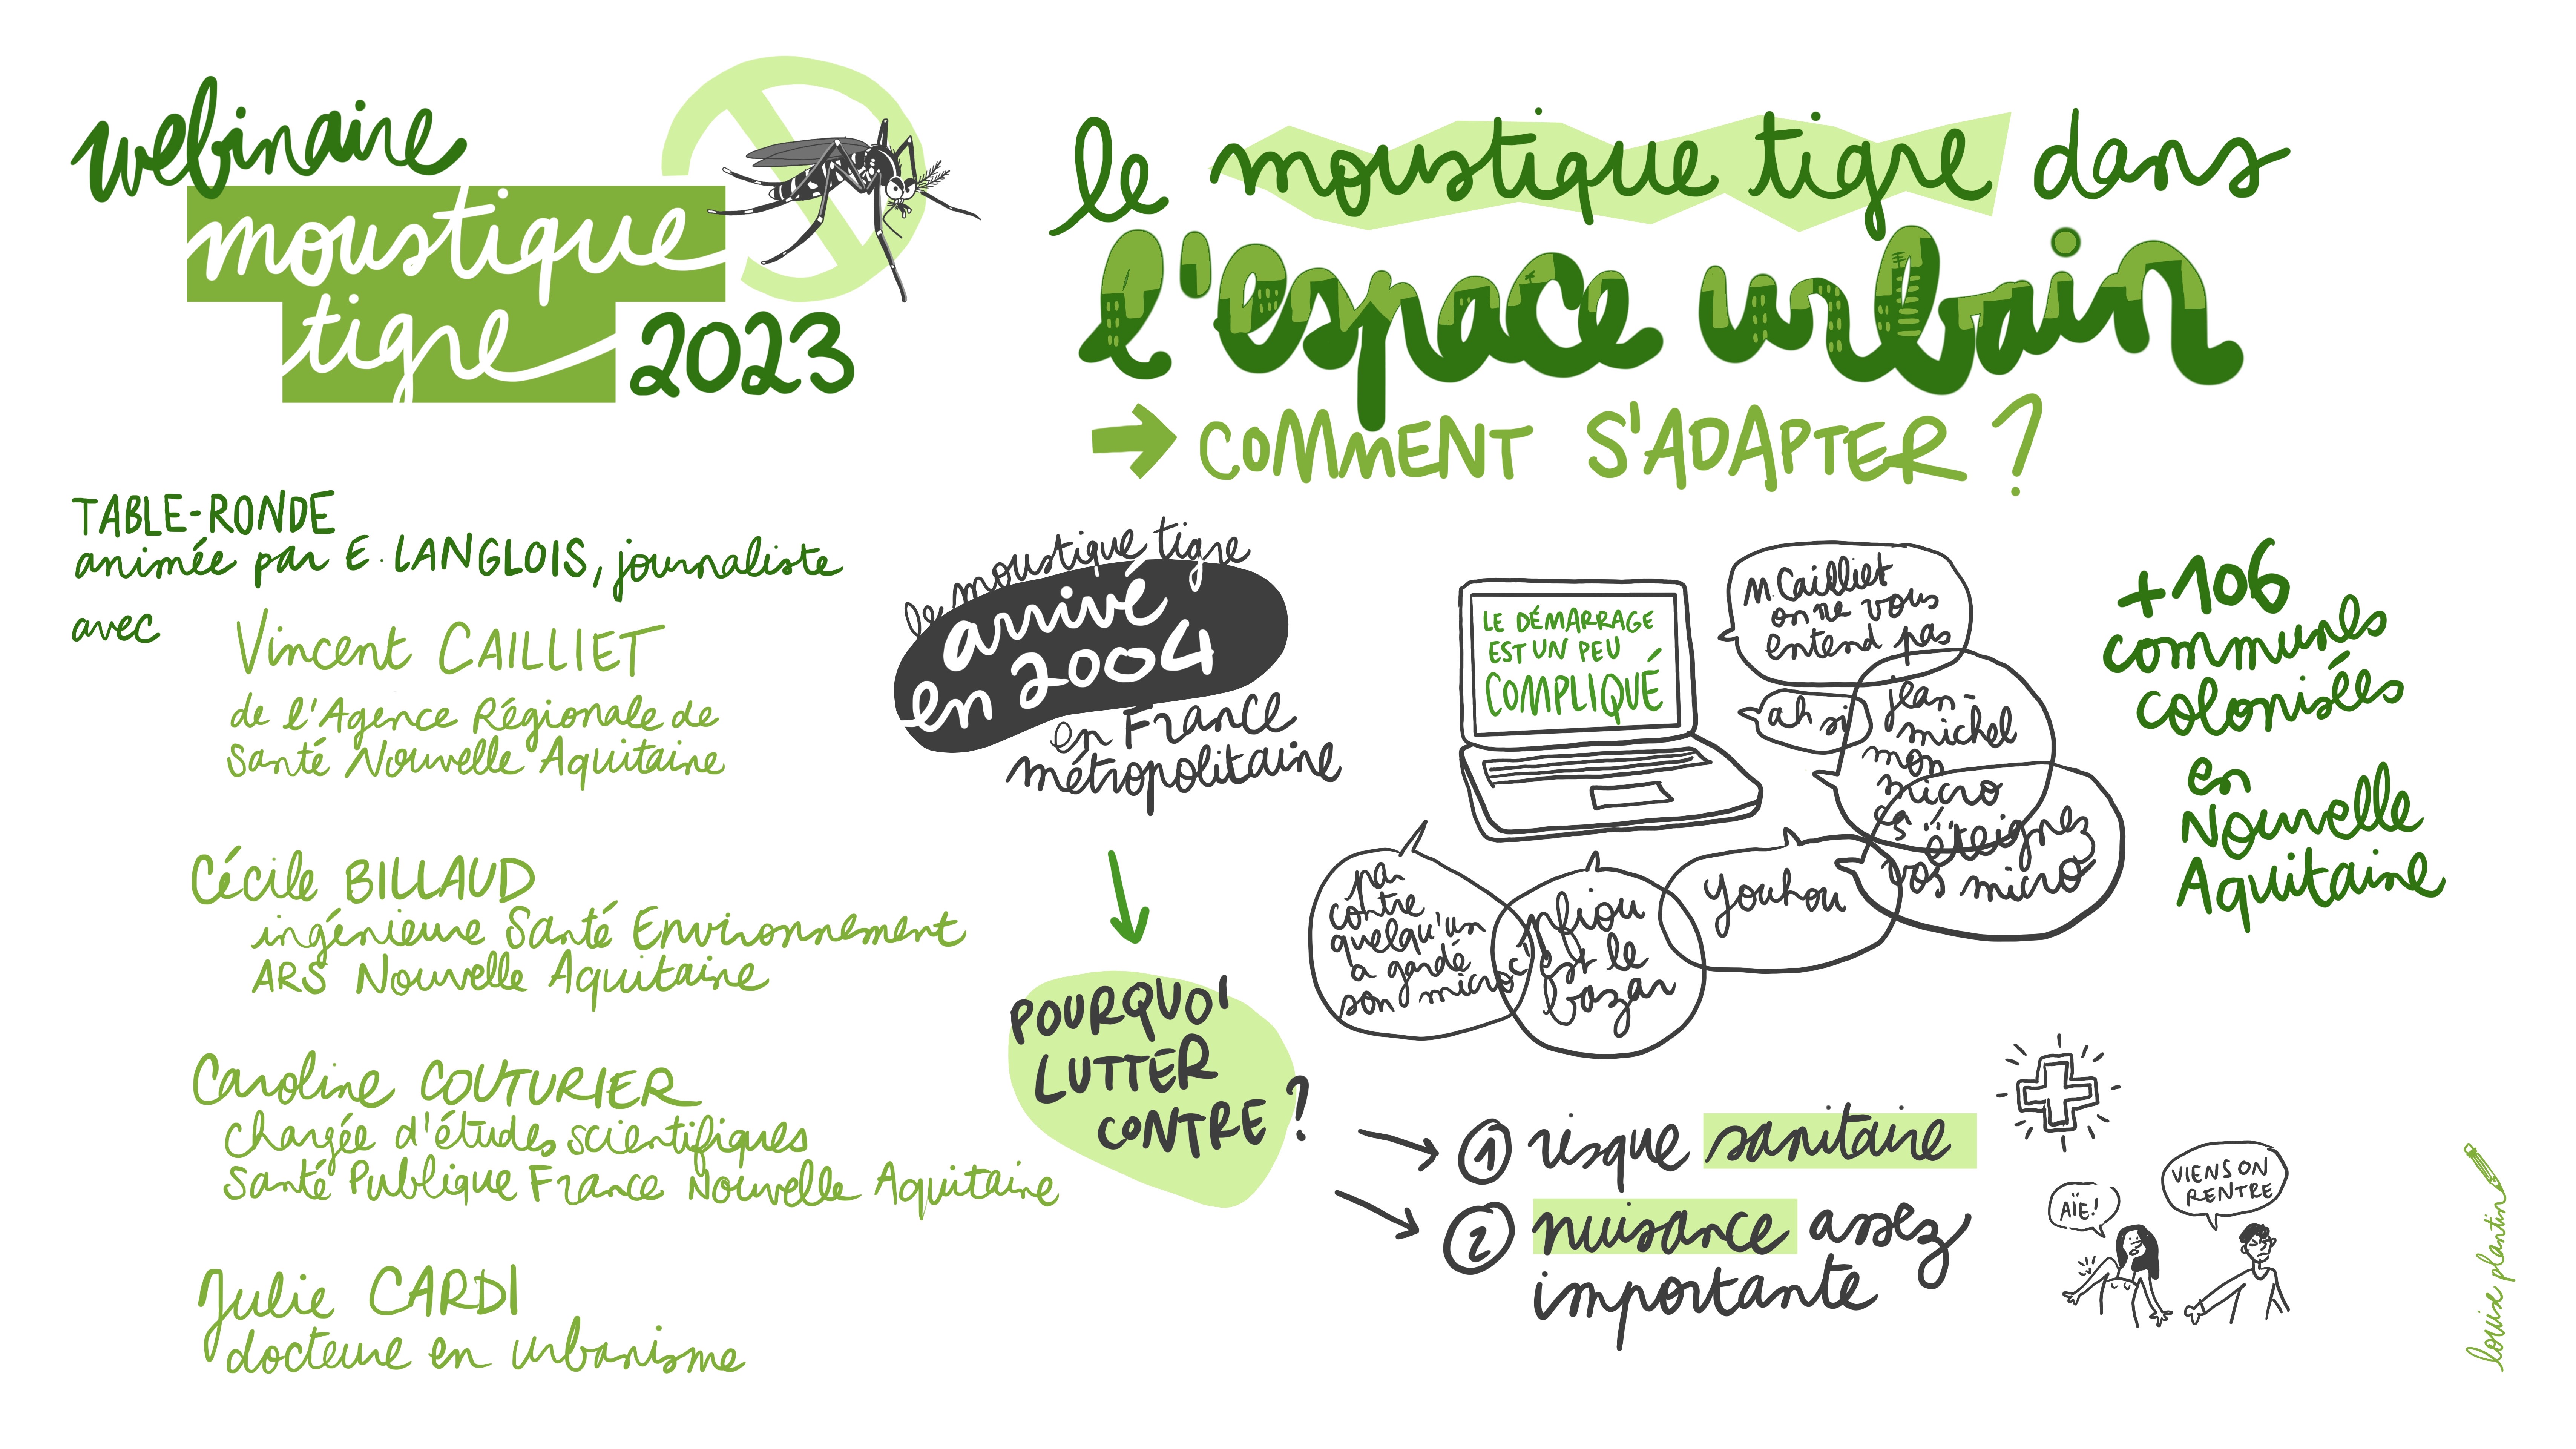 webinaire
moustique
tigre 2023
le moustique tigre dans
l'espace urbain
→ COMMENT S'ADAPTER ?
TABLE-RONDE
animée par E. LANGLOIS, journaliste
avec
Vincent CAILLIET
de l'Agence Régionale de
Santé Nouvelle Aquitaine
Cécile BILLAUD
ingénieure Santé Environnement
ARS Nouvelle Aquitaine
Caroline COUTURIER
Chargée d'études scientifiques
Santé Publique France Nouvelle Aquitaine
Julie CARDI
docteure en urbanisme
le moustique tigre
arrivé
en 2004
en France
métropolitaine
POURQUOI
LUTTER
CONTRE ?
LE DÉMARRAGE
EST UN PEU
COMPLIQUÉ
M. Cailliet
on ne vous
entend pas
ah si
jean-
michel
mon
micro
éteignez
vos micro
youhou
pfiou
c'est le
bazar
par
contre
quelqu'un
a gardé
son micro
+106
communes
colonisées
en
Nouvelle
Aquitaine
1 risque sanitaire
2 nuisance assez
importante
AÏE!
VIENS ON
RENTRE
louise plantin